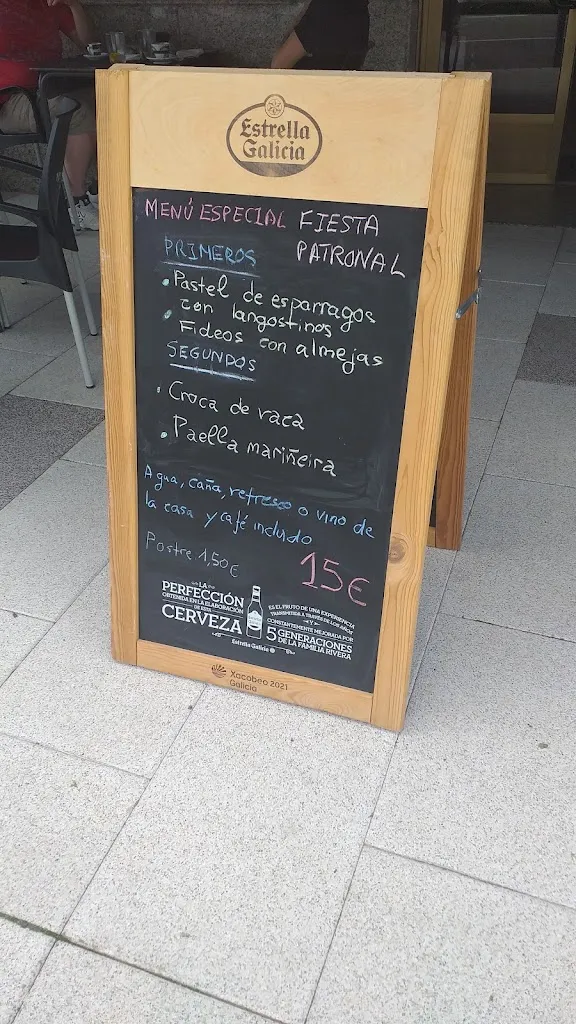 Estrella
Galicia
MENÚ ESPECIAL FIESTA
PATRONAL
PRIMEROS
• Pastel de esparragos
con langostinos
• Fideos con almejas
SEGUNDOS
• Croca de vaca
• Paella mariñeira
Agua, caña, refresco o vino de
la casa y café incluido
Postre 1,50€
15€
LA
PERFECCIÓN
OBTENIDA EN LA ELABORACIÓN
DE ESTA
CERVEZA
Estrella Galicia
ES EL FRUTO DE UNA EXPERIENCIA
TRANSMITIDA A TRAVÉS DE LOS AÑOS
Y
CONSTANTEMENTE MEJORADA POR
5 GENERACIONES
DE LA FAMILIA RIVERA
Xacobeo 2021
Galicia